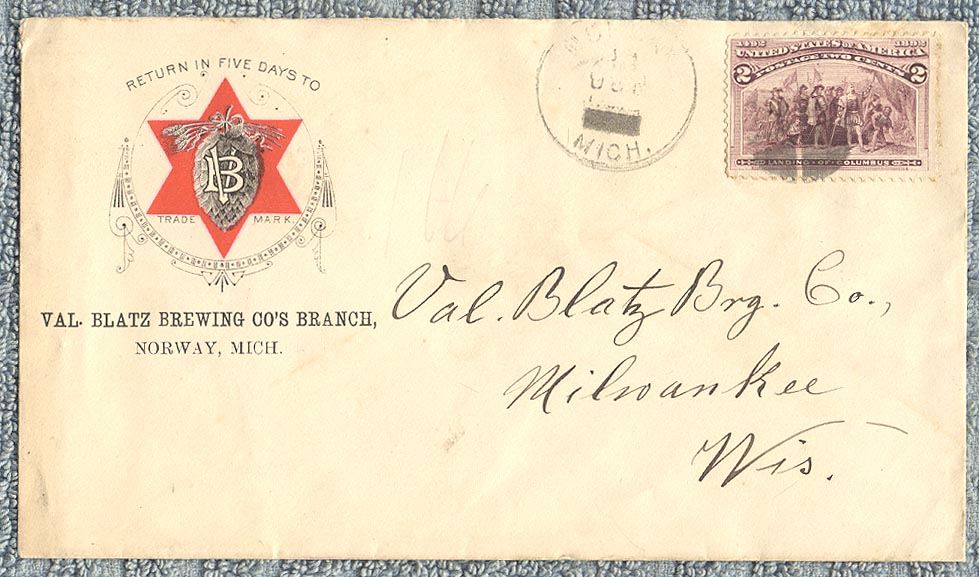 RETURN IN FIVE DAYS TO
VB
TRADE MARK.
VAL. BLATZ BREWING CO'S BRANCH,
NORWAY, MICH.
MICH.
1492 1892
UNITED STATES OF AMERICA
POSTAGE TWO CENTS
2 2
LANDING OF COLUMBUS
Val. Blatz Brg. Co.,
Milwaukee
Wis.